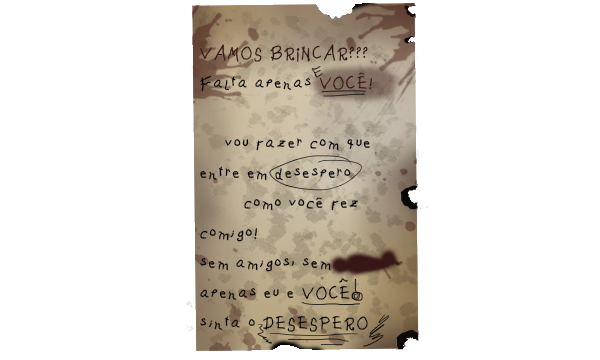 VAMOS BRINCAR???
Falta apenas E VOCÊ!
vou fazer com que
entre em desespero
como você fez
comigo!
sem amigos, sem
apenas eu e VOCÊ!
sinta o DESESPERO